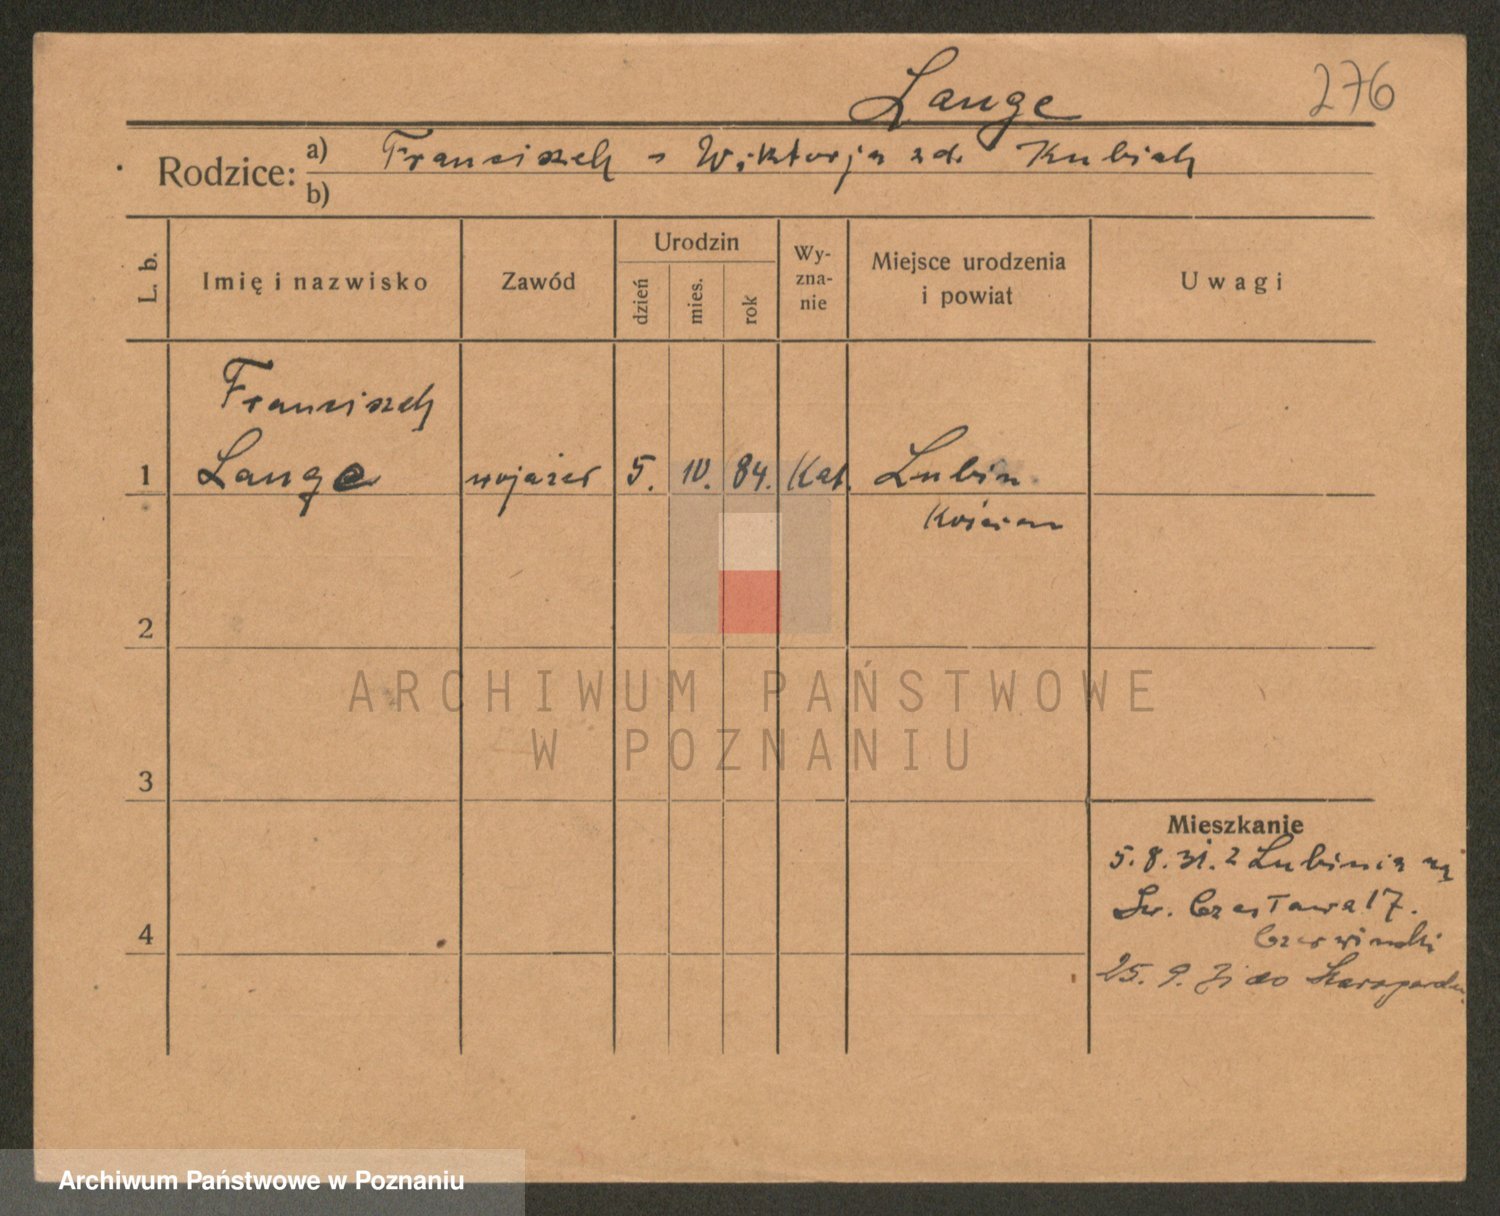 Lange
276
Rodzice: a) Franciszek - Wiktorja zd. Kubiak
b)
L. b.
Imię i nazwisko
Zawód
Urodzin
dzień
mies.
rok
Wy-
zna-
nie
Miejsce urodzenia
i powiat
Uwagi
Franciszek
1 Lange wojażer 5. 10. 84. Kat. Lubin
Kościan
2
3
4
Mieszkanie
5.8.31. z Lubinia
Św. Czesława 17.
Czerwiński
25. 9. 31 do
ARCHIWUM PAŃSTWOWE
W POZNANIU
Archiwum Państwowe w Poznaniu